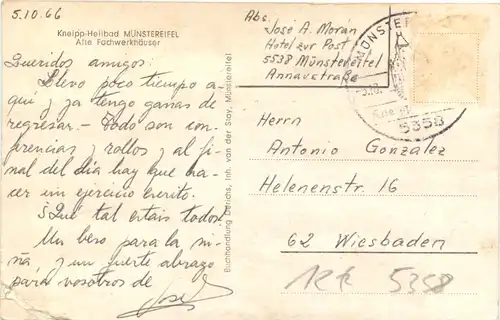 5.10.66
Kneipp-Heilbad MÜNSTEREIFEL
Alte Fachwerkhäuser
Queridos amigos:
Llevo poco tiempo a-
quí y ya tengo ganas de
regresar. Todo son con-
ferencias y rollos y al fi-
nal del día hay que ha-
cer un ejercicio escrito.
¿Qué tal estáis todos?
Un beso para la ni-
ña y un fuerte abrazo
para vosotros de
José
Buchhandlung Derichs, Inh. van der Stay, Münstereifel
Abs.
José A. Moran
Hotel zur Post
5538 Münstereifel
Annaustraße
MÜNSTER
5358
Herrn
Antonio Gonzalez
Helenenstr. 16
62 Wiesbaden
5358